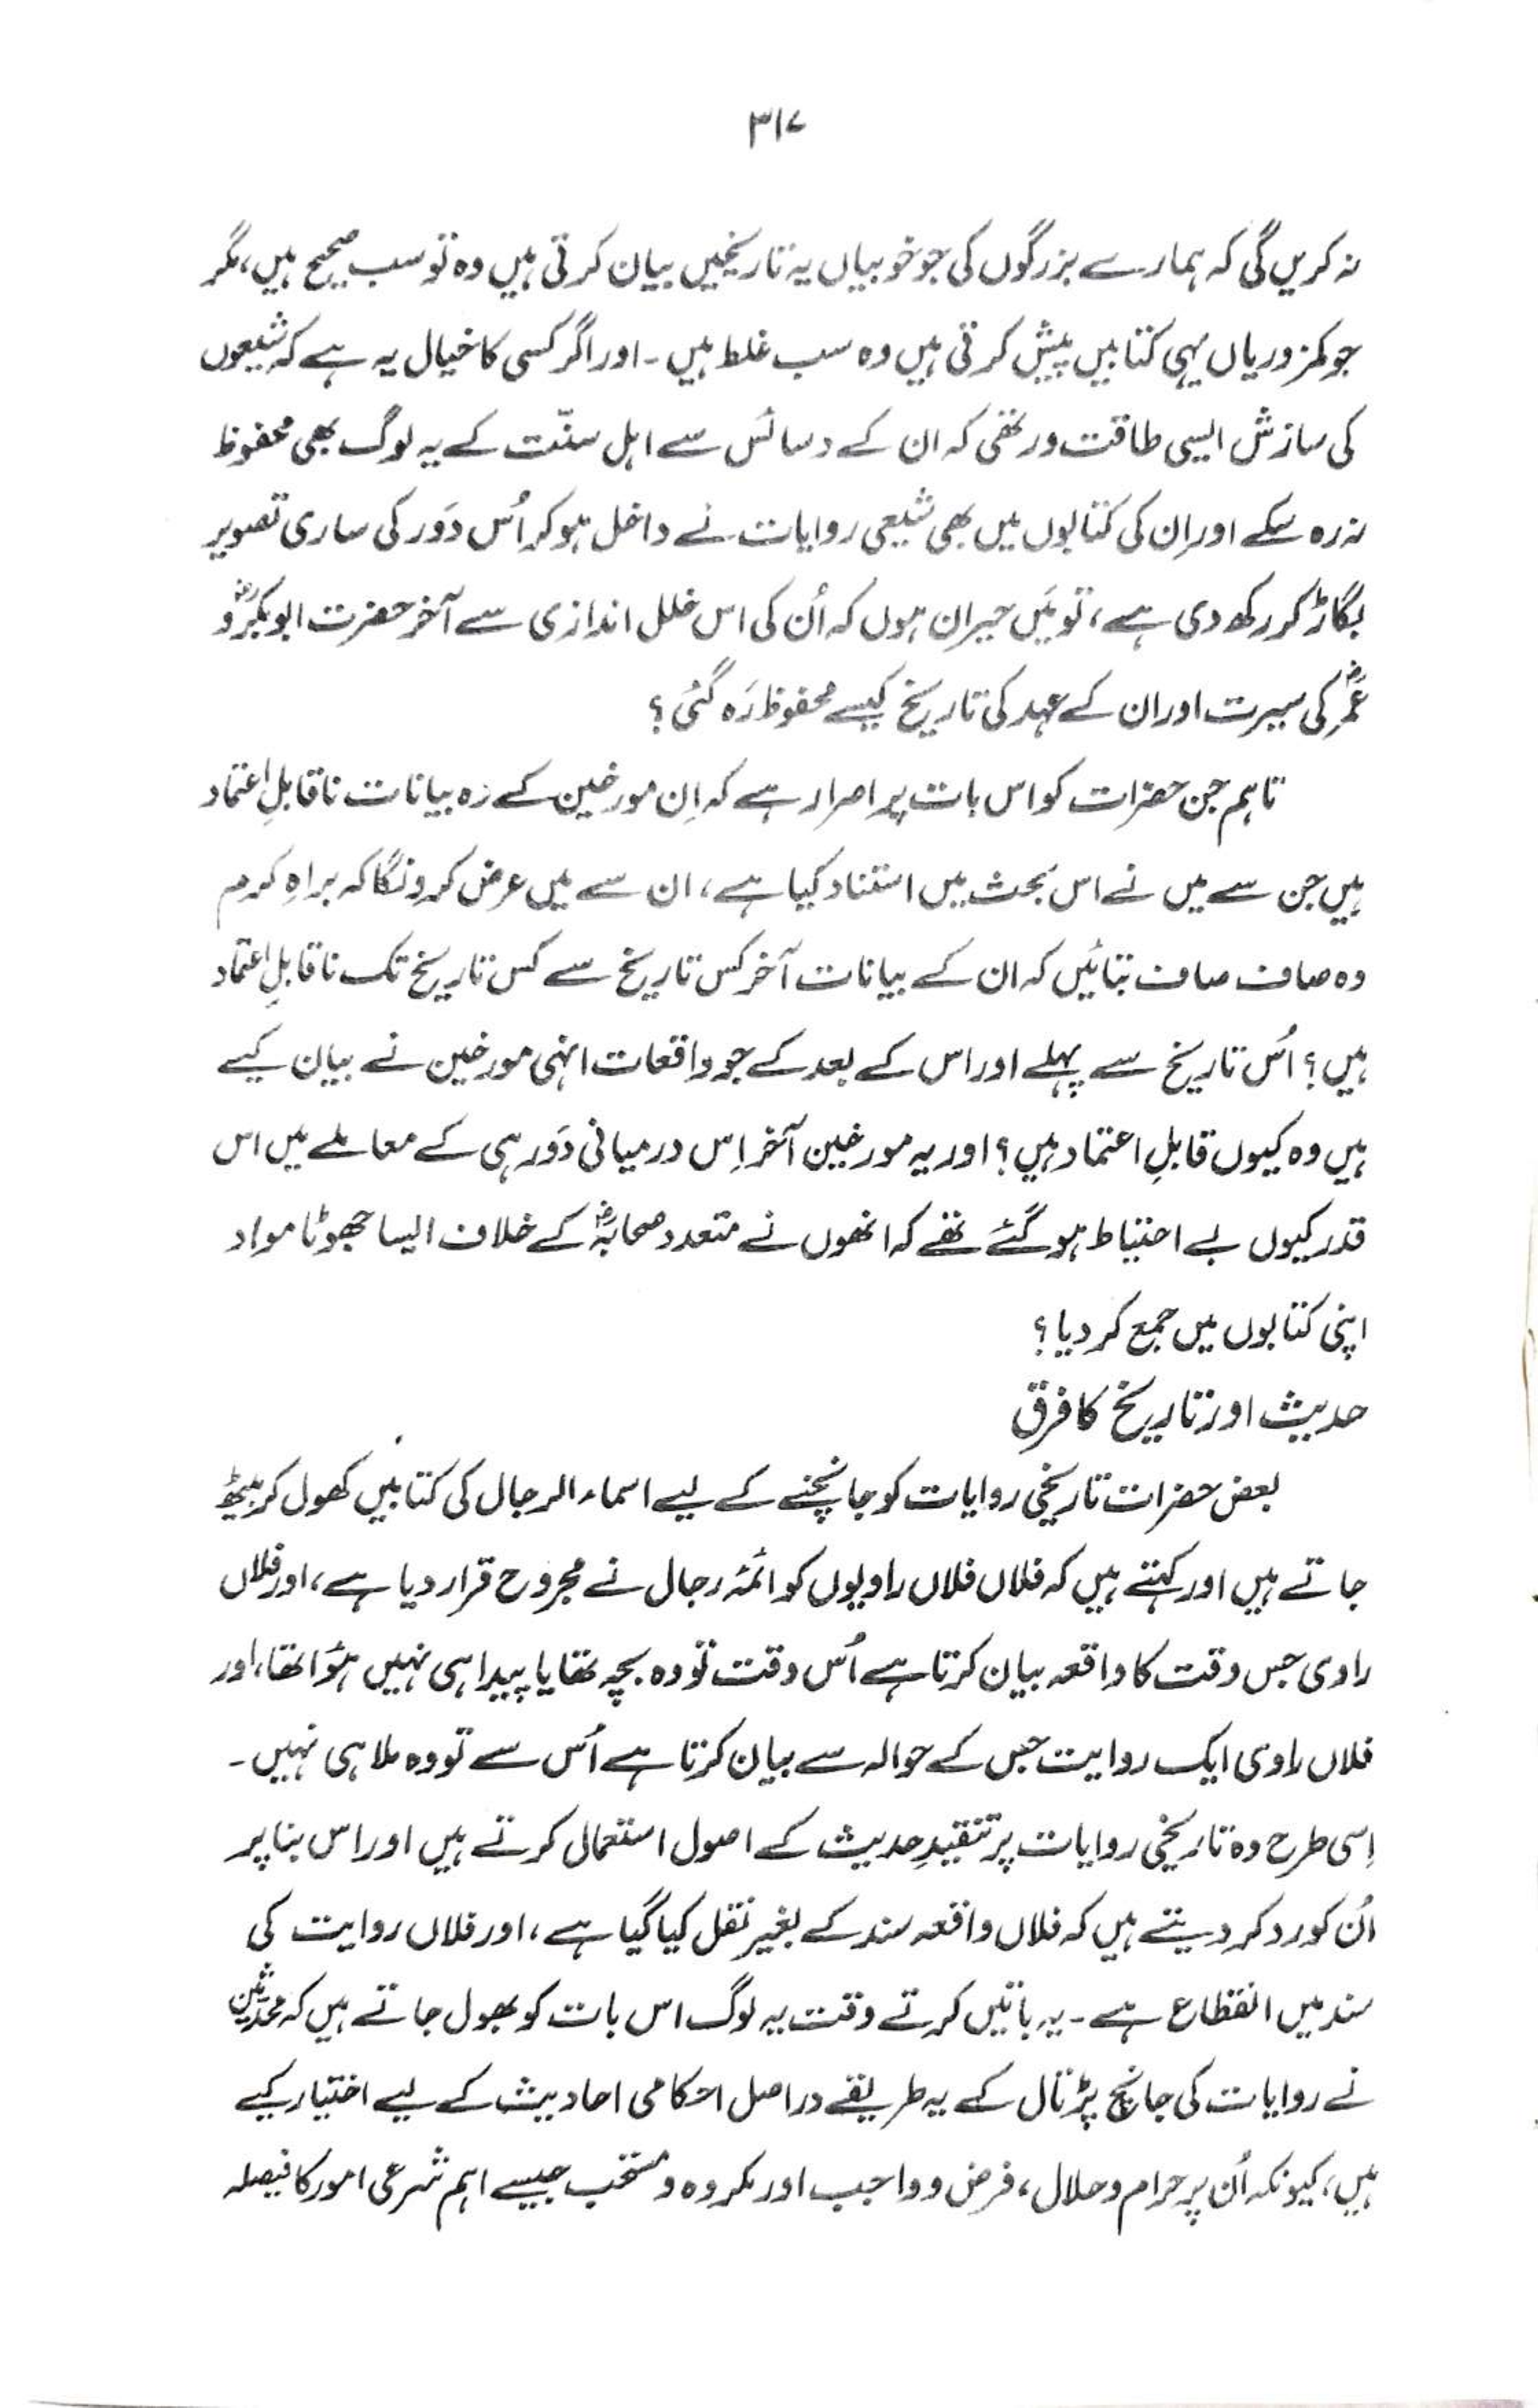 ۳۱۷
نہ کریں گی کہ ہمارے بزرگوں کی جو خوبیاں یہ تاریخیں بیان کرتی ہیں وہ تو سب صحیح ہیں، مگر
جو کمزوریاں یہی کتابیں پیش کرتی ہیں وہ سب غلط ہیں۔ اور اگر کسی کا خیال یہ ہے کہ شیعوں
کی سازش ایسی طاقت ور تھی کہ ان کے دسائس سے اہل سنّت کے یہ لوگ بھی محفوظ
نہ رہ سکے اور اِن کی کتابوں میں بھی شیعی روایات نے داخل ہو کر اُس دَور کی ساری تصویر
بگاڑ کر رکھ دی ہے، تو مَیں حیران ہوں کہ اُن کی اس خلل اندازی سے آخر حضرت ابوبکرؓ و
عمرؓ کی سیرت اور ان کے عہد کی تاریخ کیسے محفوظ رَہ گئی؟
تاہم جن حضرات کو اس بات پر اصرار ہے کہ اِن مورخین کے وہ بیانات ناقابلِ اعتماد
ہیں جن سے میں نے اس بحث میں استناد کیا ہے، ان سے میں عرض کرونگا کہ براہِ کرم
وہ صاف صاف بتائیں کہ ان کے بیانات آخر کس تاریخ سے کس تاریخ تک ناقابلِ اعتماد
ہیں؟ اُس تاریخ سے پہلے اور اس کے بعد کے جو واقعات انہی مورخین نے بیان کیے
ہیں وہ کیوں قابلِ اعتماد ہیں؟ اور یہ مورخین آخر اِس درمیانی دَور ہی کے معاملے میں اس
قدر کیوں بے احتیاط ہو گئے تھے کہ انھوں نے متعدد صحابہؓ کے خلاف ایسا جھوٹا مواد
اپنی کتابوں میں جمع کر دیا؟
حدیث اور تاریخ کا فرق
بعض حضرات تاریخی روایات کو جانچنے کے لیے اسماء الرجال کی کتابیں کھول کر بیٹھ
جاتے ہیں اور کہتے ہیں کہ فلاں فلاں راویوں کو ائمۂ رجال نے مجروح قرار دیا ہے، اور فلاں
راوی جس وقت کا واقعہ بیان کرتا ہے اُس وقت تو وہ بچہ تھا یا پیدا ہی نہیں ہوُا تھا، اور
فلاں راوی ایک روایت جس کے حوالہ سے بیان کرتا ہے اُس سے تو وہ ملا ہی نہیں۔
اِسی طرح وہ تاریخی روایات پر تنقیدِ حدیث کے اصول استعمال کرتے ہیں اور اس بنا پر
اُن کو رد کر دیتے ہیں کہ فلاں واقعہ سند کے بغیر نقل کیا گیا ہے، اور فلاں روایت کی
سند میں انقطاع ہے۔ یہ باتیں کرتے وقت یہ لوگ اس بات کو بھول جاتے ہیں کہ محدثین
نے روایات کی جانچ پڑتال کے یہ طریقے دراصل احکامی احادیث کے لیے اختیار کیے
ہیں، کیونکہ اُن پر حرام و حلال، فرض و واجب اور مکروہ و مستحب جیسے اہم شرعی امور کا فیصلہ